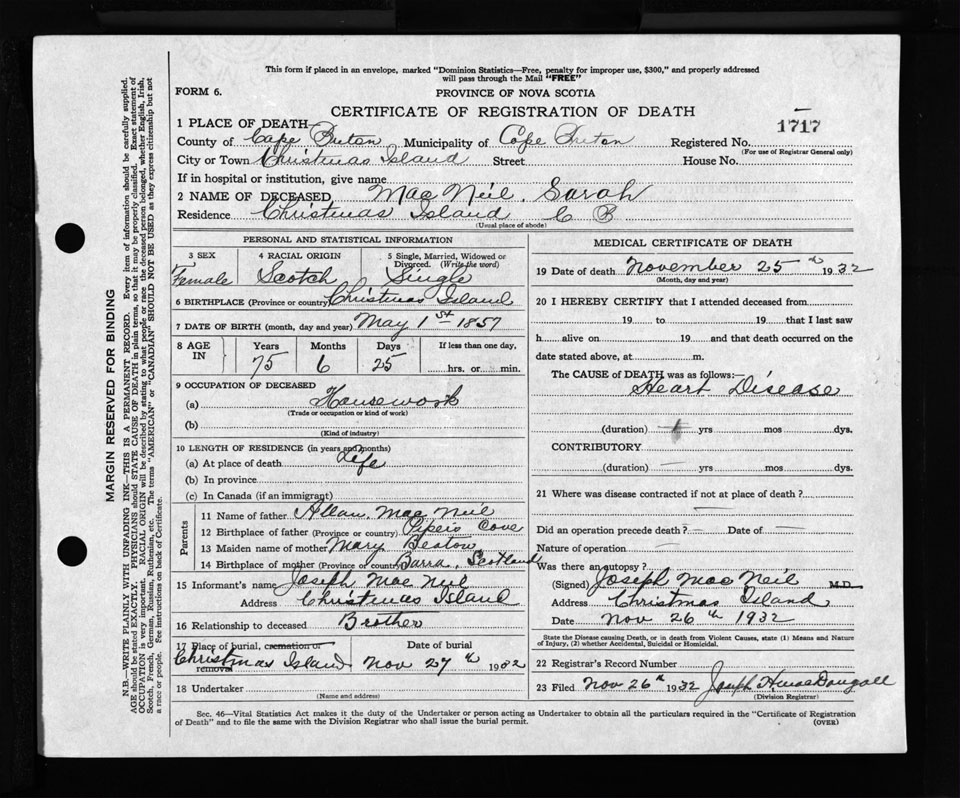 This form if placed in an envelope, marked "Dominion Statistics—Free, penalty for improper use, $300," and properly addressed
will pass through the Mail "FREE"
FORM 6.
PROVINCE OF NOVA SCOTIA
CERTIFICATE OF REGISTRATION OF DEATH
1717
1 PLACE OF DEATH
County of Cape Breton Municipality of Cape Breton Registered No.
(For use of Registrar General only)
City or Town Christmas Island Street House No.
If in hospital or institution, give name
2 NAME OF DECEASED Mac Neil, Sarah
Residence Christmas Island C B
(Usual place of abode)
PERSONAL AND STATISTICAL INFORMATION
3 SEX 4 RACIAL ORIGIN 5 Single, Married, Widowed or Divorced. (Write the word)
Female Scotch Single
6 BIRTHPLACE (Province or country) Christmas Island
7 DATE OF BIRTH (month, day and year) May 1st 1857
8 AGE IN Years Months Days If less than one day,
75 6 25 hrs. or min.
9 OCCUPATION OF DECEASED
(a) Housework
(Trade or occupation or kind of work)
(b)
(Kind of industry)
10 LENGTH OF RESIDENCE (in years and months)
(a) At place of death Life
(b) In province
(c) In Canada (if an immigrant)
Parents
11 Name of father Allan Mac Neil
12 Birthplace of father (Province or country) Pipers Cove
13 Maiden name of mother Mary Beaton
14 Birthplace of mother (Province or country) Barra, Scotland
15 Informant's name Joseph Mac Neil
Address Christmas Island
16 Relationship to deceased Brother
17 Place of burial, cremation or removal Date of burial
Christmas Island Nov 27th 1932
18 Undertaker
(Name and address)
MEDICAL CERTIFICATE OF DEATH
19 Date of death November 25th 1932
(Month, day and year)
20 I HEREBY CERTIFY that I attended deceased from
19 to 19 that I last saw
h alive on 19 and that death occurred on the
date stated above, at m.
The CAUSE of DEATH was as follows:—
Heart Disease
(duration) yrs mos dys.
CONTRIBUTORY
(duration) — yrs mos dys.
21 Where was disease contracted if not at place of death?
—
Did an operation precede death? — Date of —
Nature of operation —
Was there an autopsy?
(Signed) Joseph Mac Neil M.D.
Address Christmas Island
Date Nov 26th 1932
State the Disease causing Death, or in death from Violent Causes, state (1) Means and Nature
of Injury, (2) whether Accidental, Suicidal or Homicidal.
22 Registrar's Record Number
23 Filed Nov 26th 1932 Joseph H MacDougall
(Division Registrar)
Sec. 46—Vital Statistics Act makes it the duty of the Undertaker or person acting as Undertaker to obtain all the particulars required in the "Certificate of Registration
of Death" and to file the same with the Division Registrar who shall issue the burial permit.
(OVER)
MARGIN RESERVED FOR BINDING
N.B.—WRITE PLAINLY WITH UNFADING INK—THIS IS A PERMANENT RECORD. Every item of information should be carefully supplied.
AGE should be stated EXACTLY. PHYSICIANS should STATE CAUSE OF DEATH in plain terms, so that it may be properly classified. Exact statement of
OCCUPATION is very important. RACIAL ORIGIN will be described by stating to what people or race the deceased person belonged, whether English, Irish,
Scotch, French, German, Russian, Ruthenian, etc. The terms "AMERICAN" or "CANADIAN" SHOULD NOT BE USED as they express citizenship but not
a race or people. See instructions on back of Certificate.